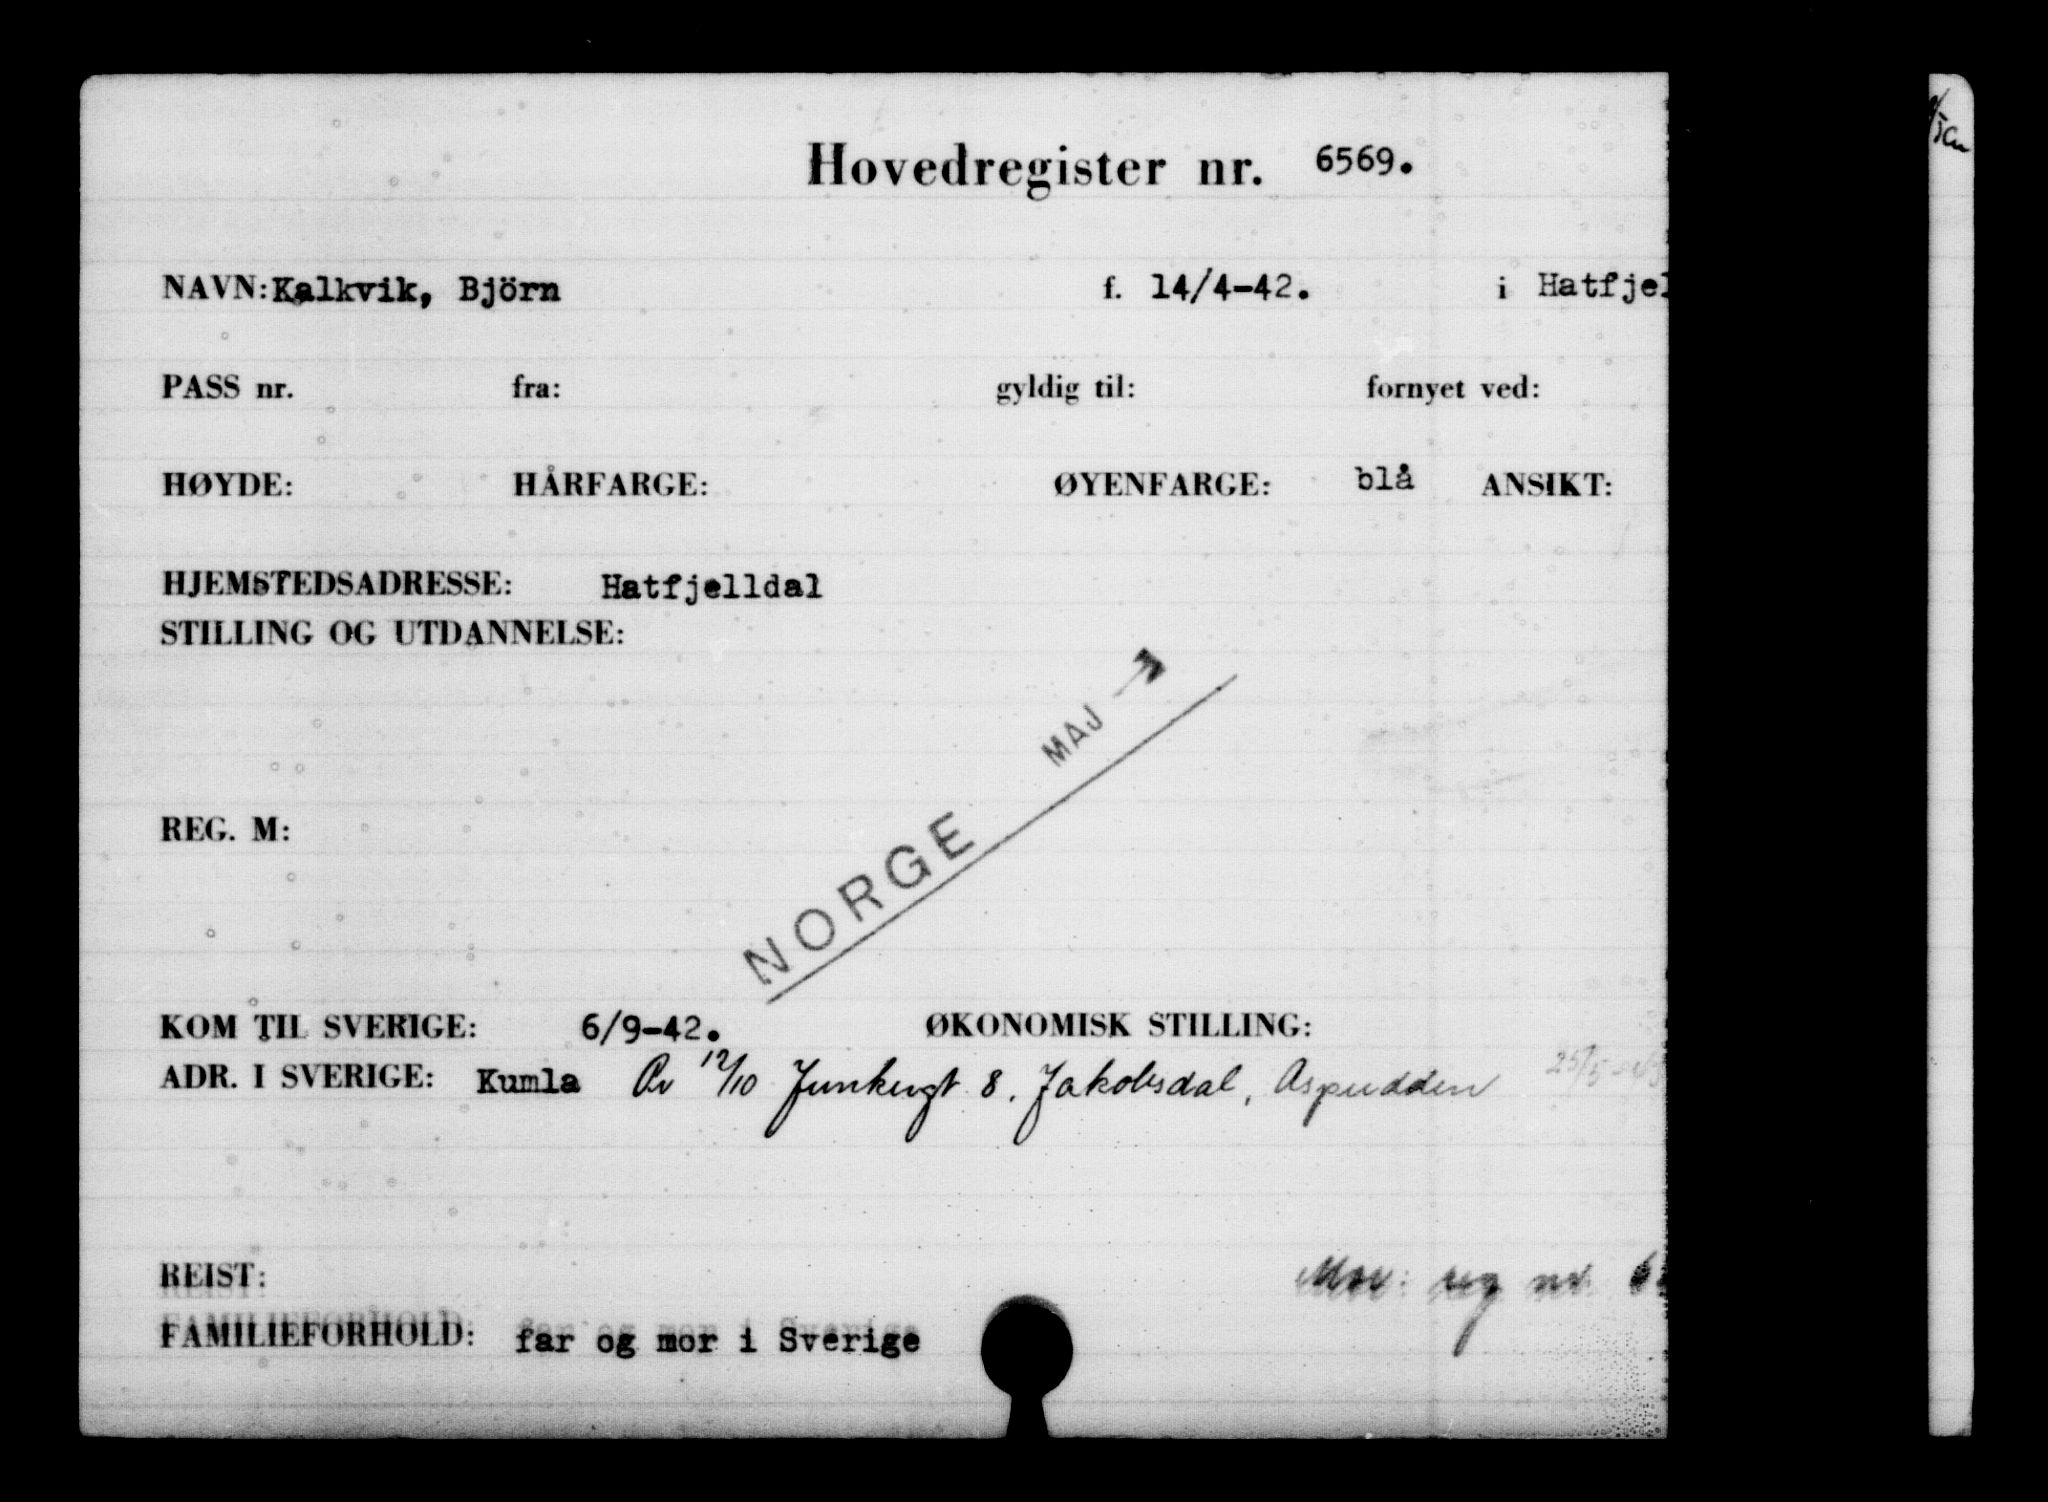 Hovedregister nr. 6569.
NAVN: Kalkvik, Björn f. 14/4-42. i Hatfjel
PASS nr. fra: gyldig til: fornyet ved:
HØYDE: HÅRFARGE: ØYENFARGE: blå ANSIKT:
HJEMSTEDSADRESSE: Hatfjelldal
STILLING OG UTDANNELSE:
MAJ
REG. M:
NORGE
KOM TIL SVERIGE: 6/9-42. ØKONOMISK STILLING:
ADR. I SVERIGE: Kumla 12/10 Junkergt 8, Jakobsdal, Aspudden
REIST: Mor: reg nr. 6
FAMILIEFORHOLD: far og mor i Sverige